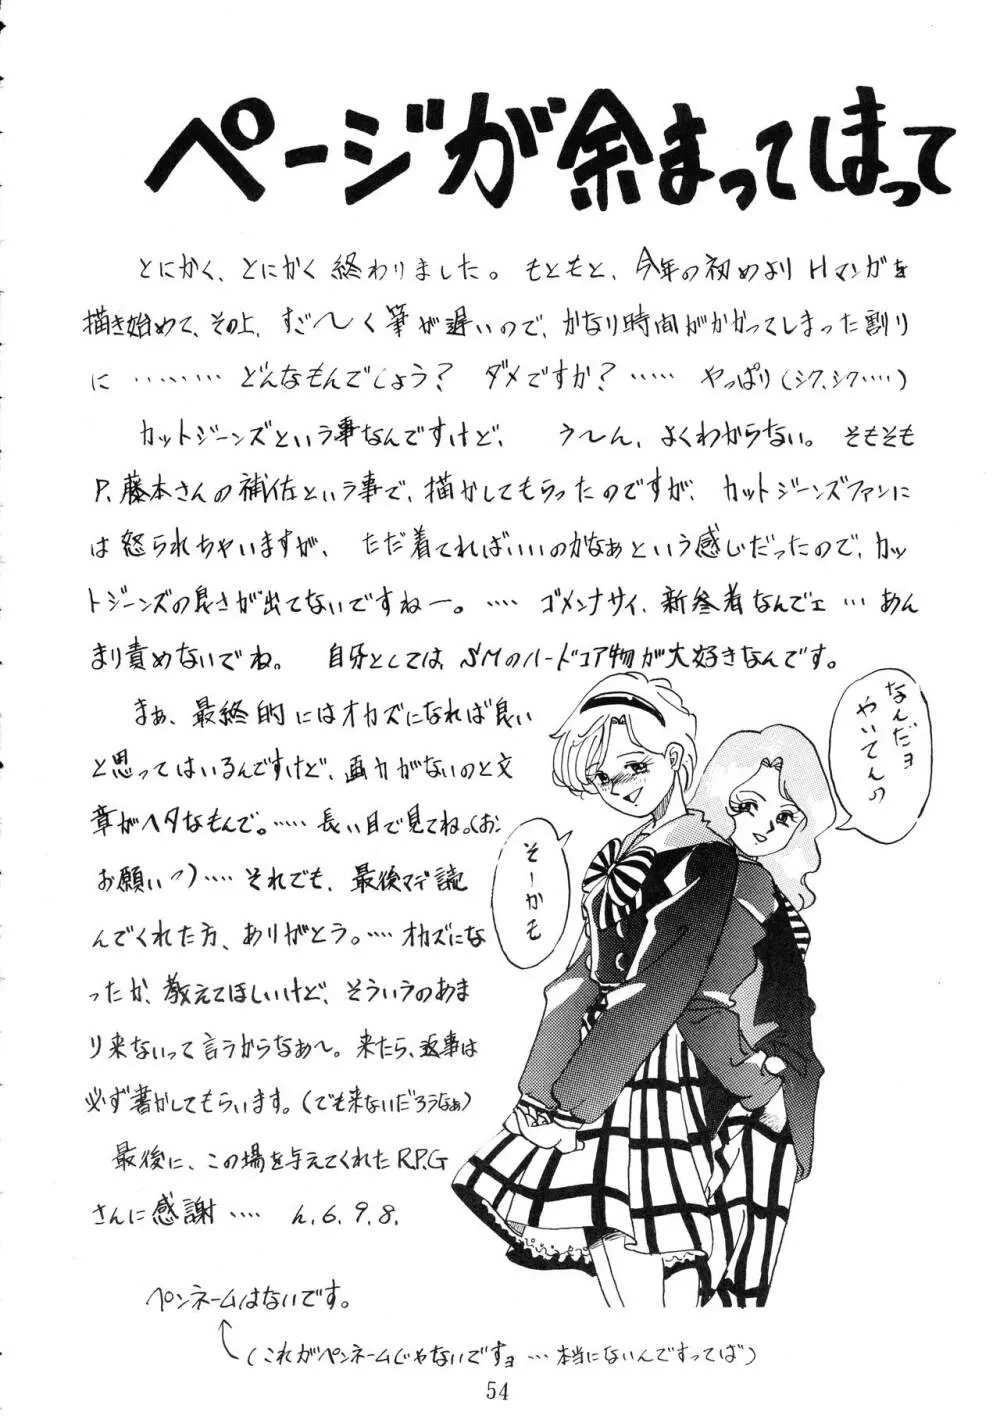 ページが余まってしまって
とにかく、とにかく終わりました。もともと、今年の初めよりHマンガを
描き始めて、その上、すご〜く筆が遅いので、かなり時間がかかってしまった割り
に………どんなもんでしょう? ダメですか?…… やっぱり(シク、シク……)
カットジーンズという事なんですけど、 う〜ん、よくわからない。そもそも
P.藤本さんの補佐という事で、描かしてもらったのですが、カットジーンズファンに
は怒られちゃいますが、 ただ着てればいいのかなぁという感じだったので、カッ
トジーンズの良さが出てないですねー。…… ゴメンナサイ、新参者なんでェ…あん
まり責めないでね。 自分としては、SMのハードコア物が大好きなんです。
まぁ、最終的にはオカズになれば良い
と思ってはいるんですけど、画力がないのと文
章がヘタなもんで。……長い目で見てね。(お、
お願いっ)……それでも、最後マデ読
んでくれた方、ありがとう。……オカズにな
ったか、教えてほしいけど、そういうのあま
り来ないって言うからなぁ〜。来たら、返事は
必ず書かしてもらいます。(でも来ないだろうなぁ)
最後に、この場を与えてくれたR.P.G
さんに感謝…… h.6.9.8.
なんだョ
やいてんの
そーかも
ペンネームはないです。
(これがペンネームじゃないですョ…本当にないんですってば)
54